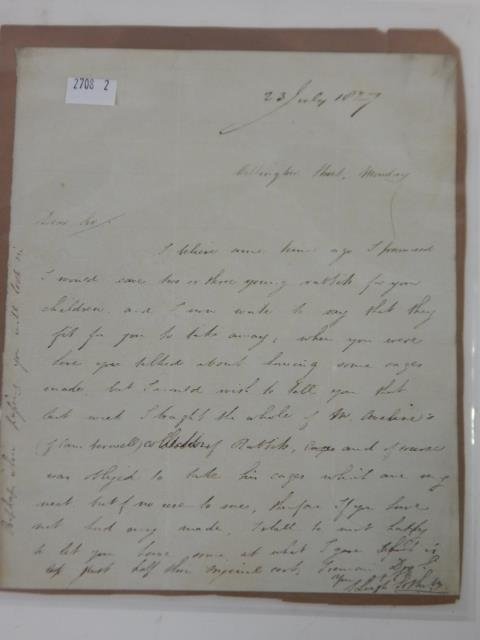 2708 2
23 July 1827
Wellington Street, Monday
Dear Sir
I believe some time ago I promised
I would save two or three young rabbits for your
children and I now write to say that they
fit for you to take away, when you were
here you talked about having some cages
made. but I would wish to tell you that
last week I bought the whole of Mr.
(of Camberwell) collection of Rabbits, Cages and of course
was obliged to take his cages which are very
neat but of no use to me, therefore If you have
not had any made, I shall be most happy
to let you have some, at what I gave which is
just half their original cost, I remain Dr Sir
yours
before you will look in